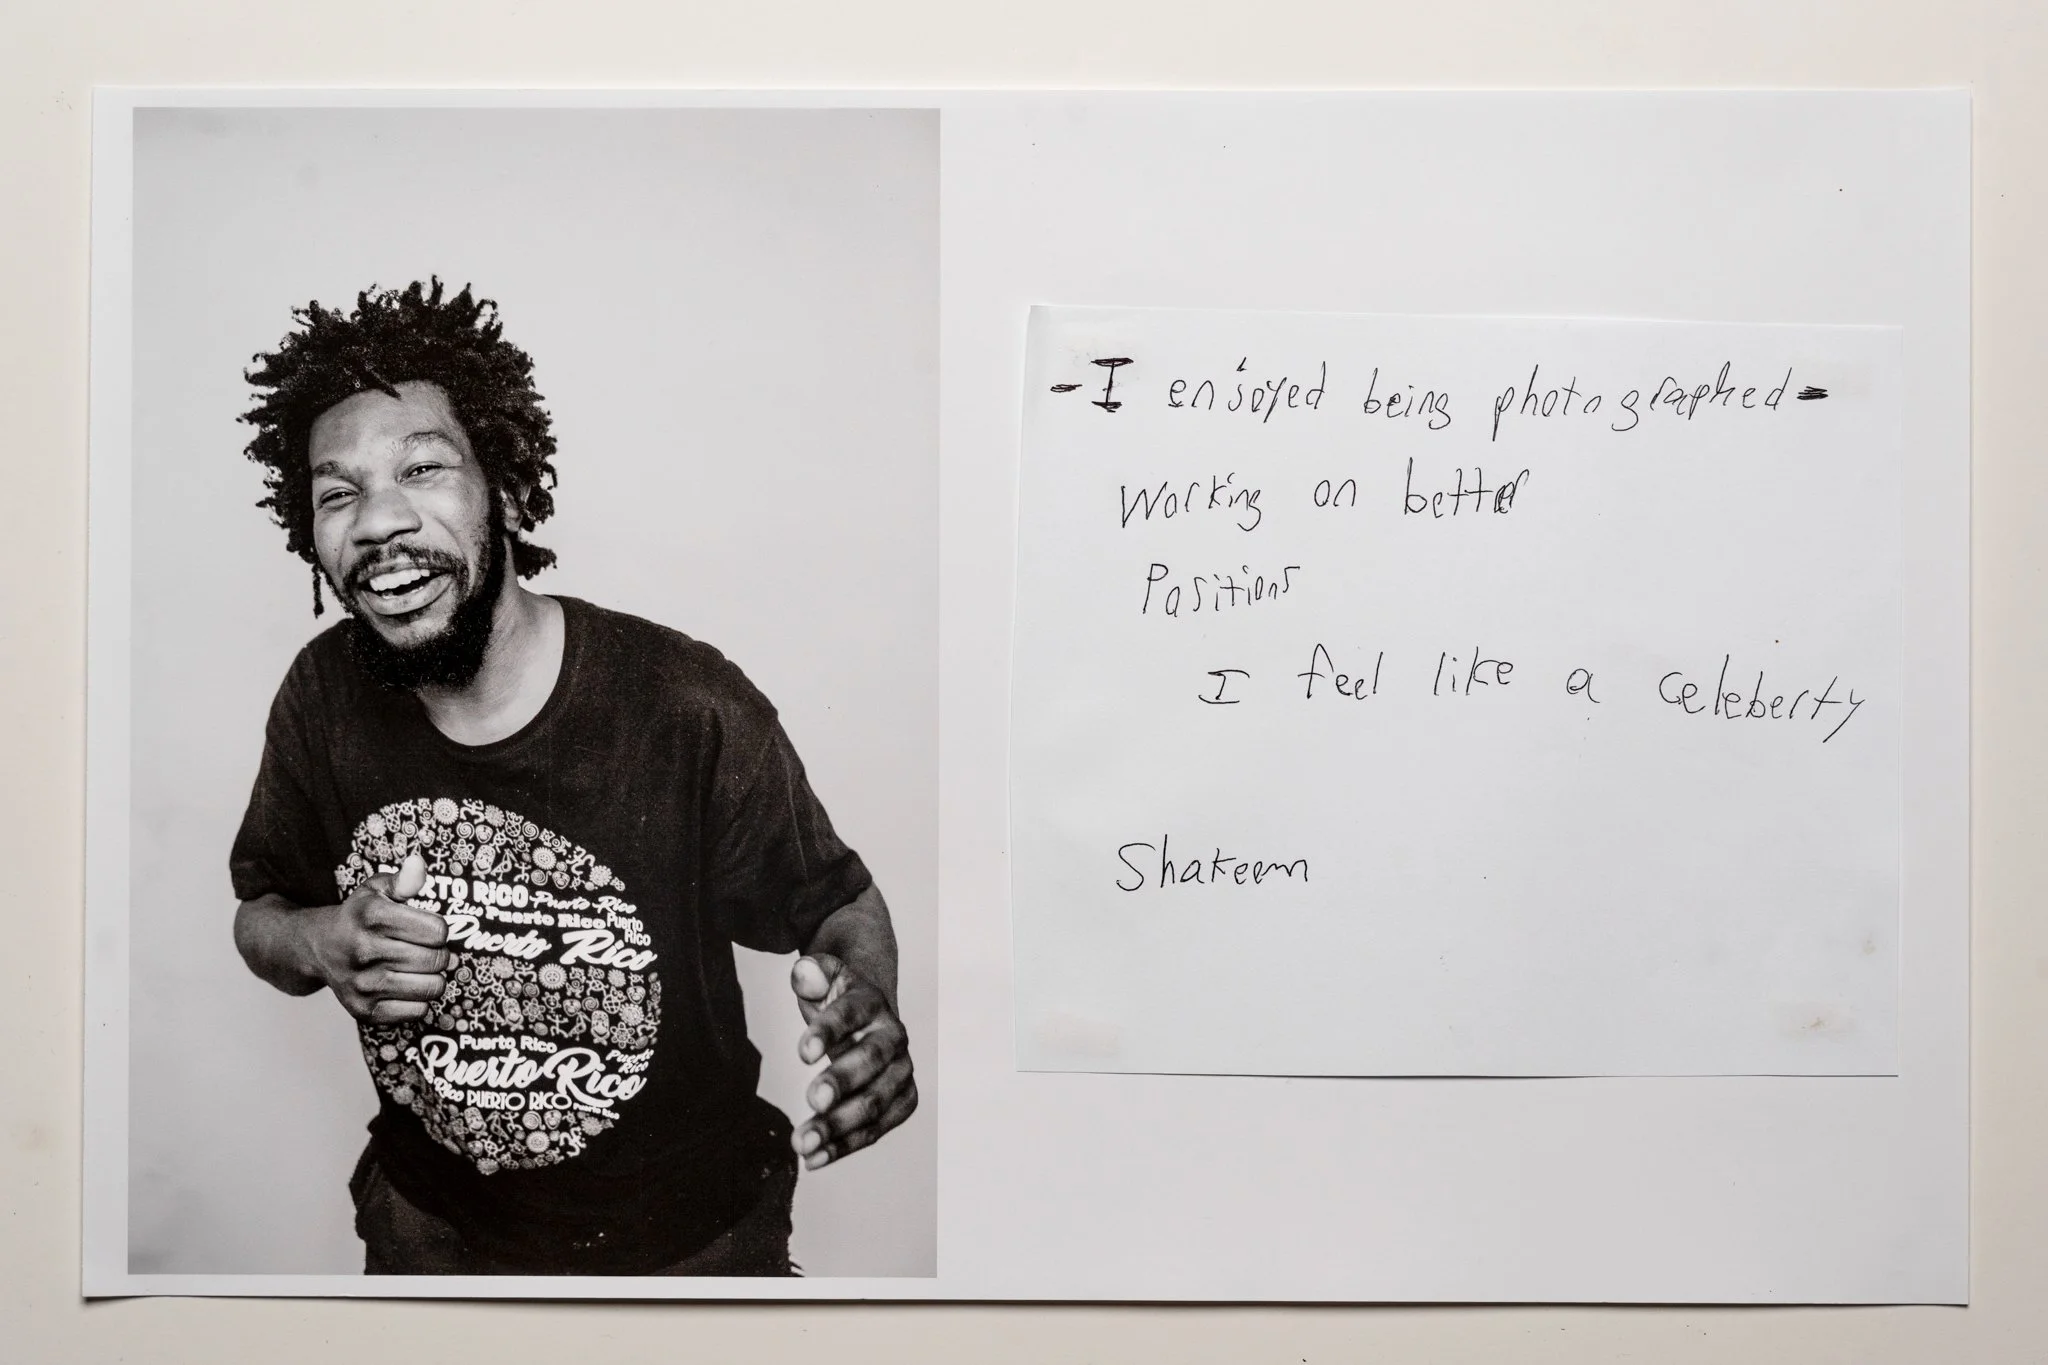 -I enjoyed being photographed-
Working on better
Positions
I feel like a celeberty
Shakeem
RTO RICO Puerto Rico
Rico Puerto Rico Puerto Rico
Puerto Rico
Puerto Rico
Puerto Rico Puerto Rico
Rico PUERTO RICO Puerto Rico